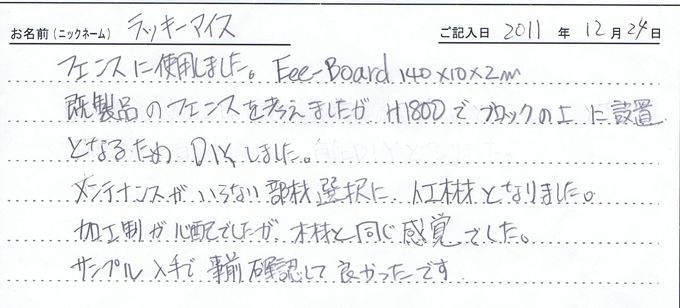 お名前(ニックネーム) ラッキーマイス ご記入日 2011 年 12 月 24 日
フェンスに使用しました。Eee-Board 140×10×2m
既製品のフェンスを考えましたが H1800で ブロックの上 に設置
となるため DIYしました。
メンテナンスが いらない 部材選択に 人工木材となりました。
加工制が心配でしたが 木材と同じ感覚でした。
サンプル入手で 事前確認して 良かったです